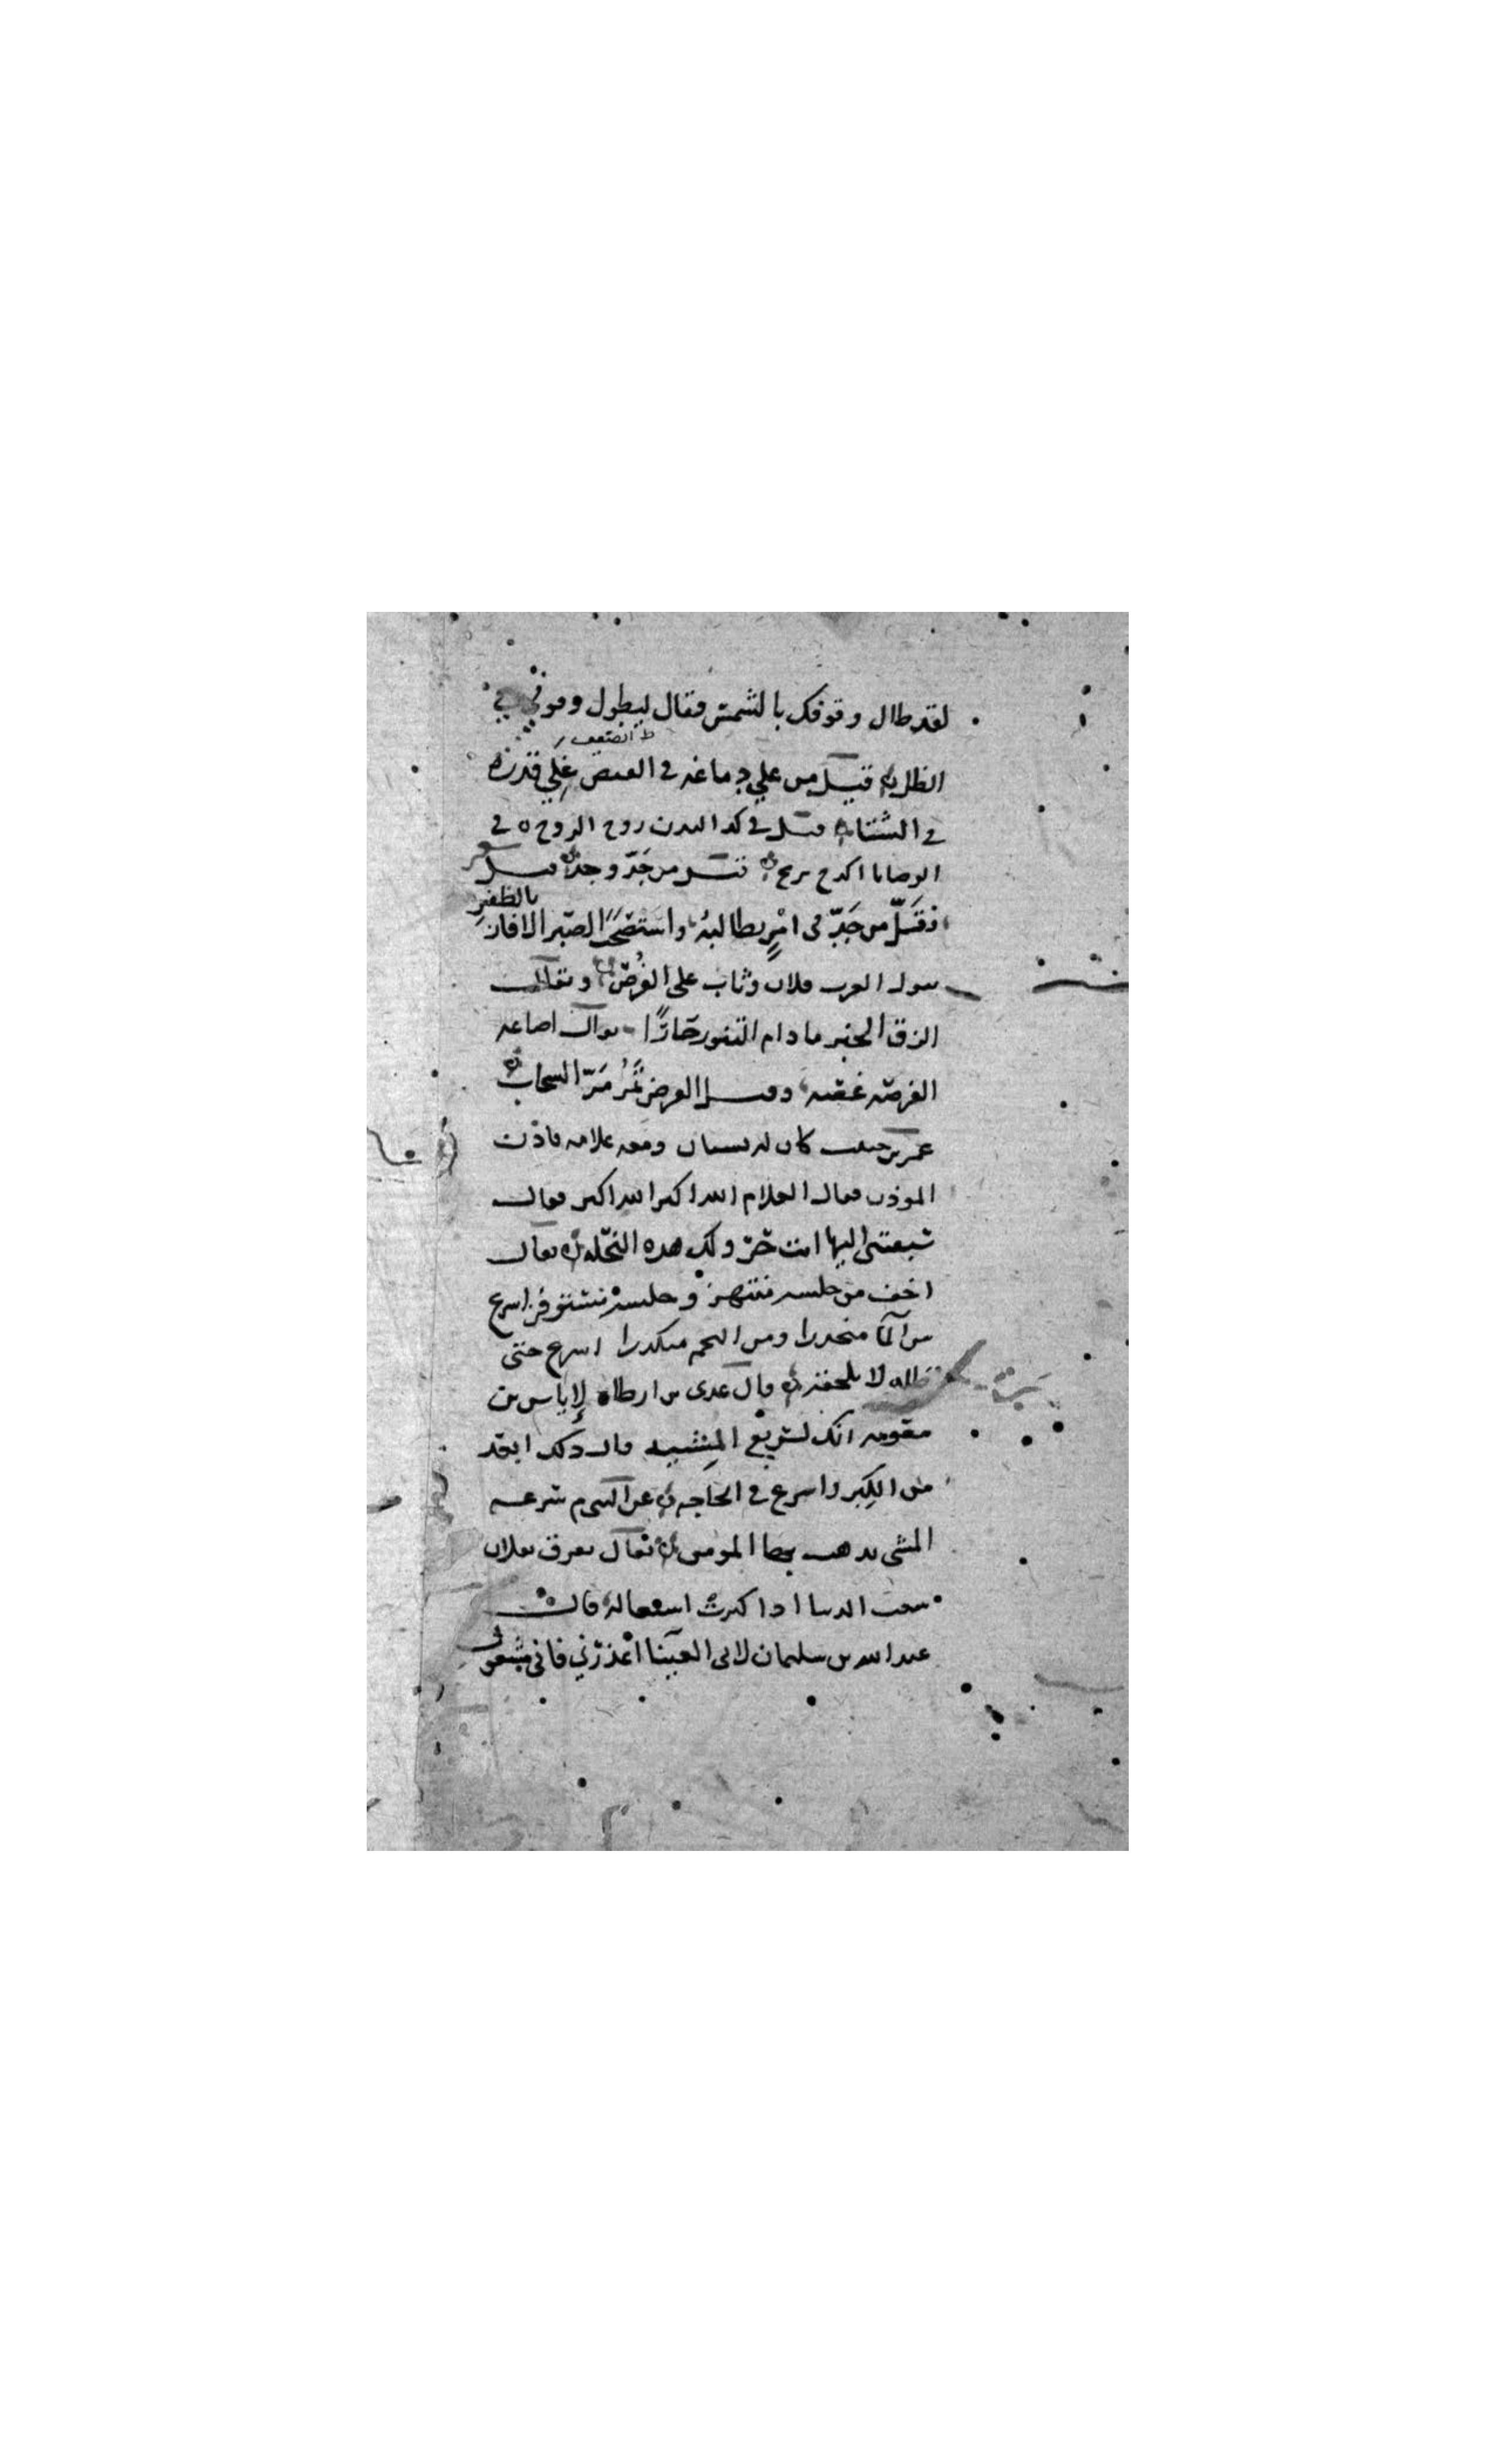 لقد طال وقوفك بالشمس فقال ليطول وقوفي في
الصيف
الظل قيل من غلي دماغه في القيض غلي قدره
في الشتاء قيل في كد البدن روح الروح ه في
الوصايا اكدح تربح قيل من جَدّ وجد قيل شعر
وَقَلّ من جَدّ في امْرٍ يطالبهُ واسْتصْحَبَ الصّبر الا فاز
بالظفرِ
يقول العرب فلان وثاب على الفُرصْ ويقال
الزق الخبز ما دام التنور حَارًّا يقال اضاعه
الفرصه غصه وقيل الفرص تمُرُ مَرّ السحاب
عمر بن حبيب كان له بستان ومعه غلامه فاذن
الموذن فقال الغلام الله اكبر الله اكبر فقال
سبقتني اليها انت حرّ ولك هذه النخله يقال
اخف من جلسه منتهز و جلسه مستوفز اسرع
من المآ منحدرا ومن النجم منكدرا اسرع حتى
ظله لا يلحقه قال عدى بن ارطاه لإياس بن
معويه انك لسريع المِشيه قال ذلك ابعد
من الكِبر واسرع في الحاجه عن النبي م سرعه
المشي يذهب بهآ المومن يقال تفرق بفلان
الدنيا اذا كثرت اشغاله قال
عبد الله بن سليمان لابى العَينا اعْذرْني فانى مشغول